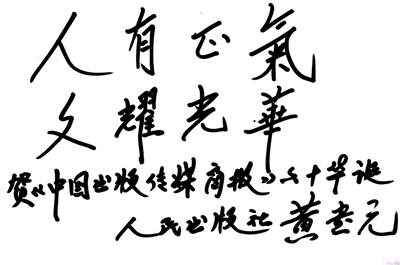 人有正氣
文耀光華
贺《中国出版传媒商报》二十华诞
人民出版社 黄書元